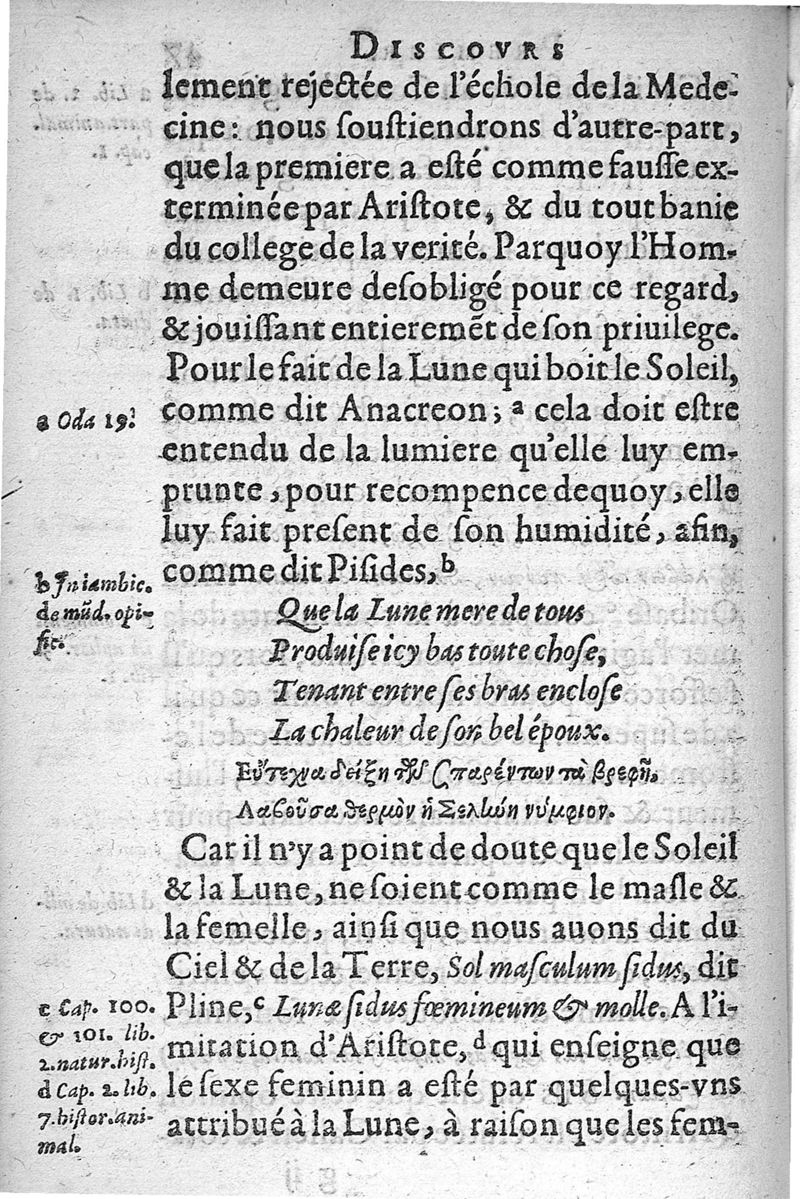 DISCOVRS
lement rejectée de l'échole de la Mede-
cine: nous ſouſtiendrons d'autre-part,
que la premiere a eſté comme fauſſe ex-
terminée par Ariſtote, & du tout banie
du college de la verité. Parquoy l'Hom-
me demeure deſobligé pour ce regard,
& jouiſſant entieremēt de ſon priuilege.
Pour le fait de la Lune qui boit le Soleil,
comme dit Anacreon; a cela doit eſtre
a Oda 19.
entendu de la lumiere qu'elle luy em-
prunte, pour recompence dequoy, elle
luy fait preſent de ſon humidité, afin,
comme dit Piſides, b
b In iambic.
de mūd. opi-
fic.
Que la Lune mere de tous
Produiſe icy bas toute choſe,
Tenant entre ſes bras encloſe
La chaleur de ſon bel époux.
Εὔτεχνα δείξη τῶν σπαρέντων τὰ βρεφῆ,
Λαβοῦσα θερμὸν ἡ Σελήνη νύμφιον.
Car il n'y a point de doute que le Soleil
& la Lune, ne ſoient comme le maſle &
la femelle, ainſi que nous auons dit du
Ciel & de la Terre, Sol maſculum ſidus, dit
Pline, c Lunæ ſidus fœmineum & molle. A l'i-
c Cap. 100.
& 101. lib.
2. natur. hiſt.
mitation d'Ariſtote, d qui enſeigne que
le ſexe feminin a eſté par quelques-vns
d Cap. 2. lib.
7. hiſtor. ani-
mal.
attribué à la Lune, à raiſon que les fem-